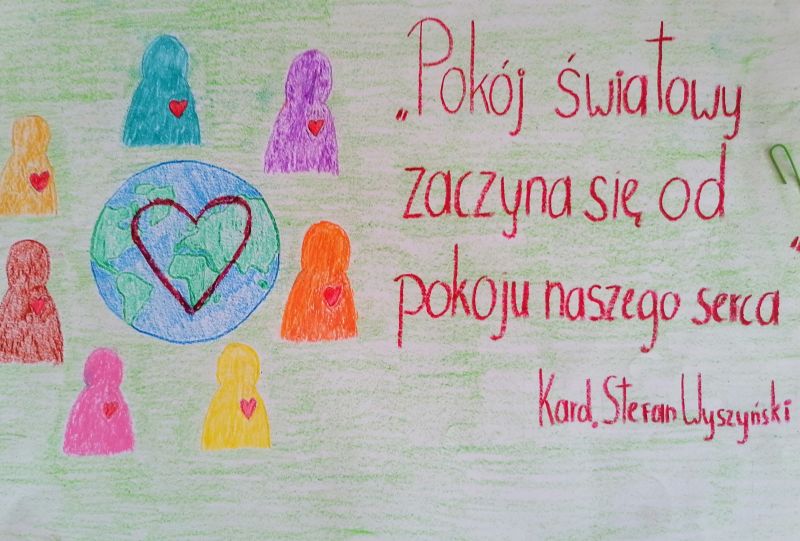 „Pokój światowy
zaczyna się od
pokoju naszego serca"
Kard. Stefan Wyszyński